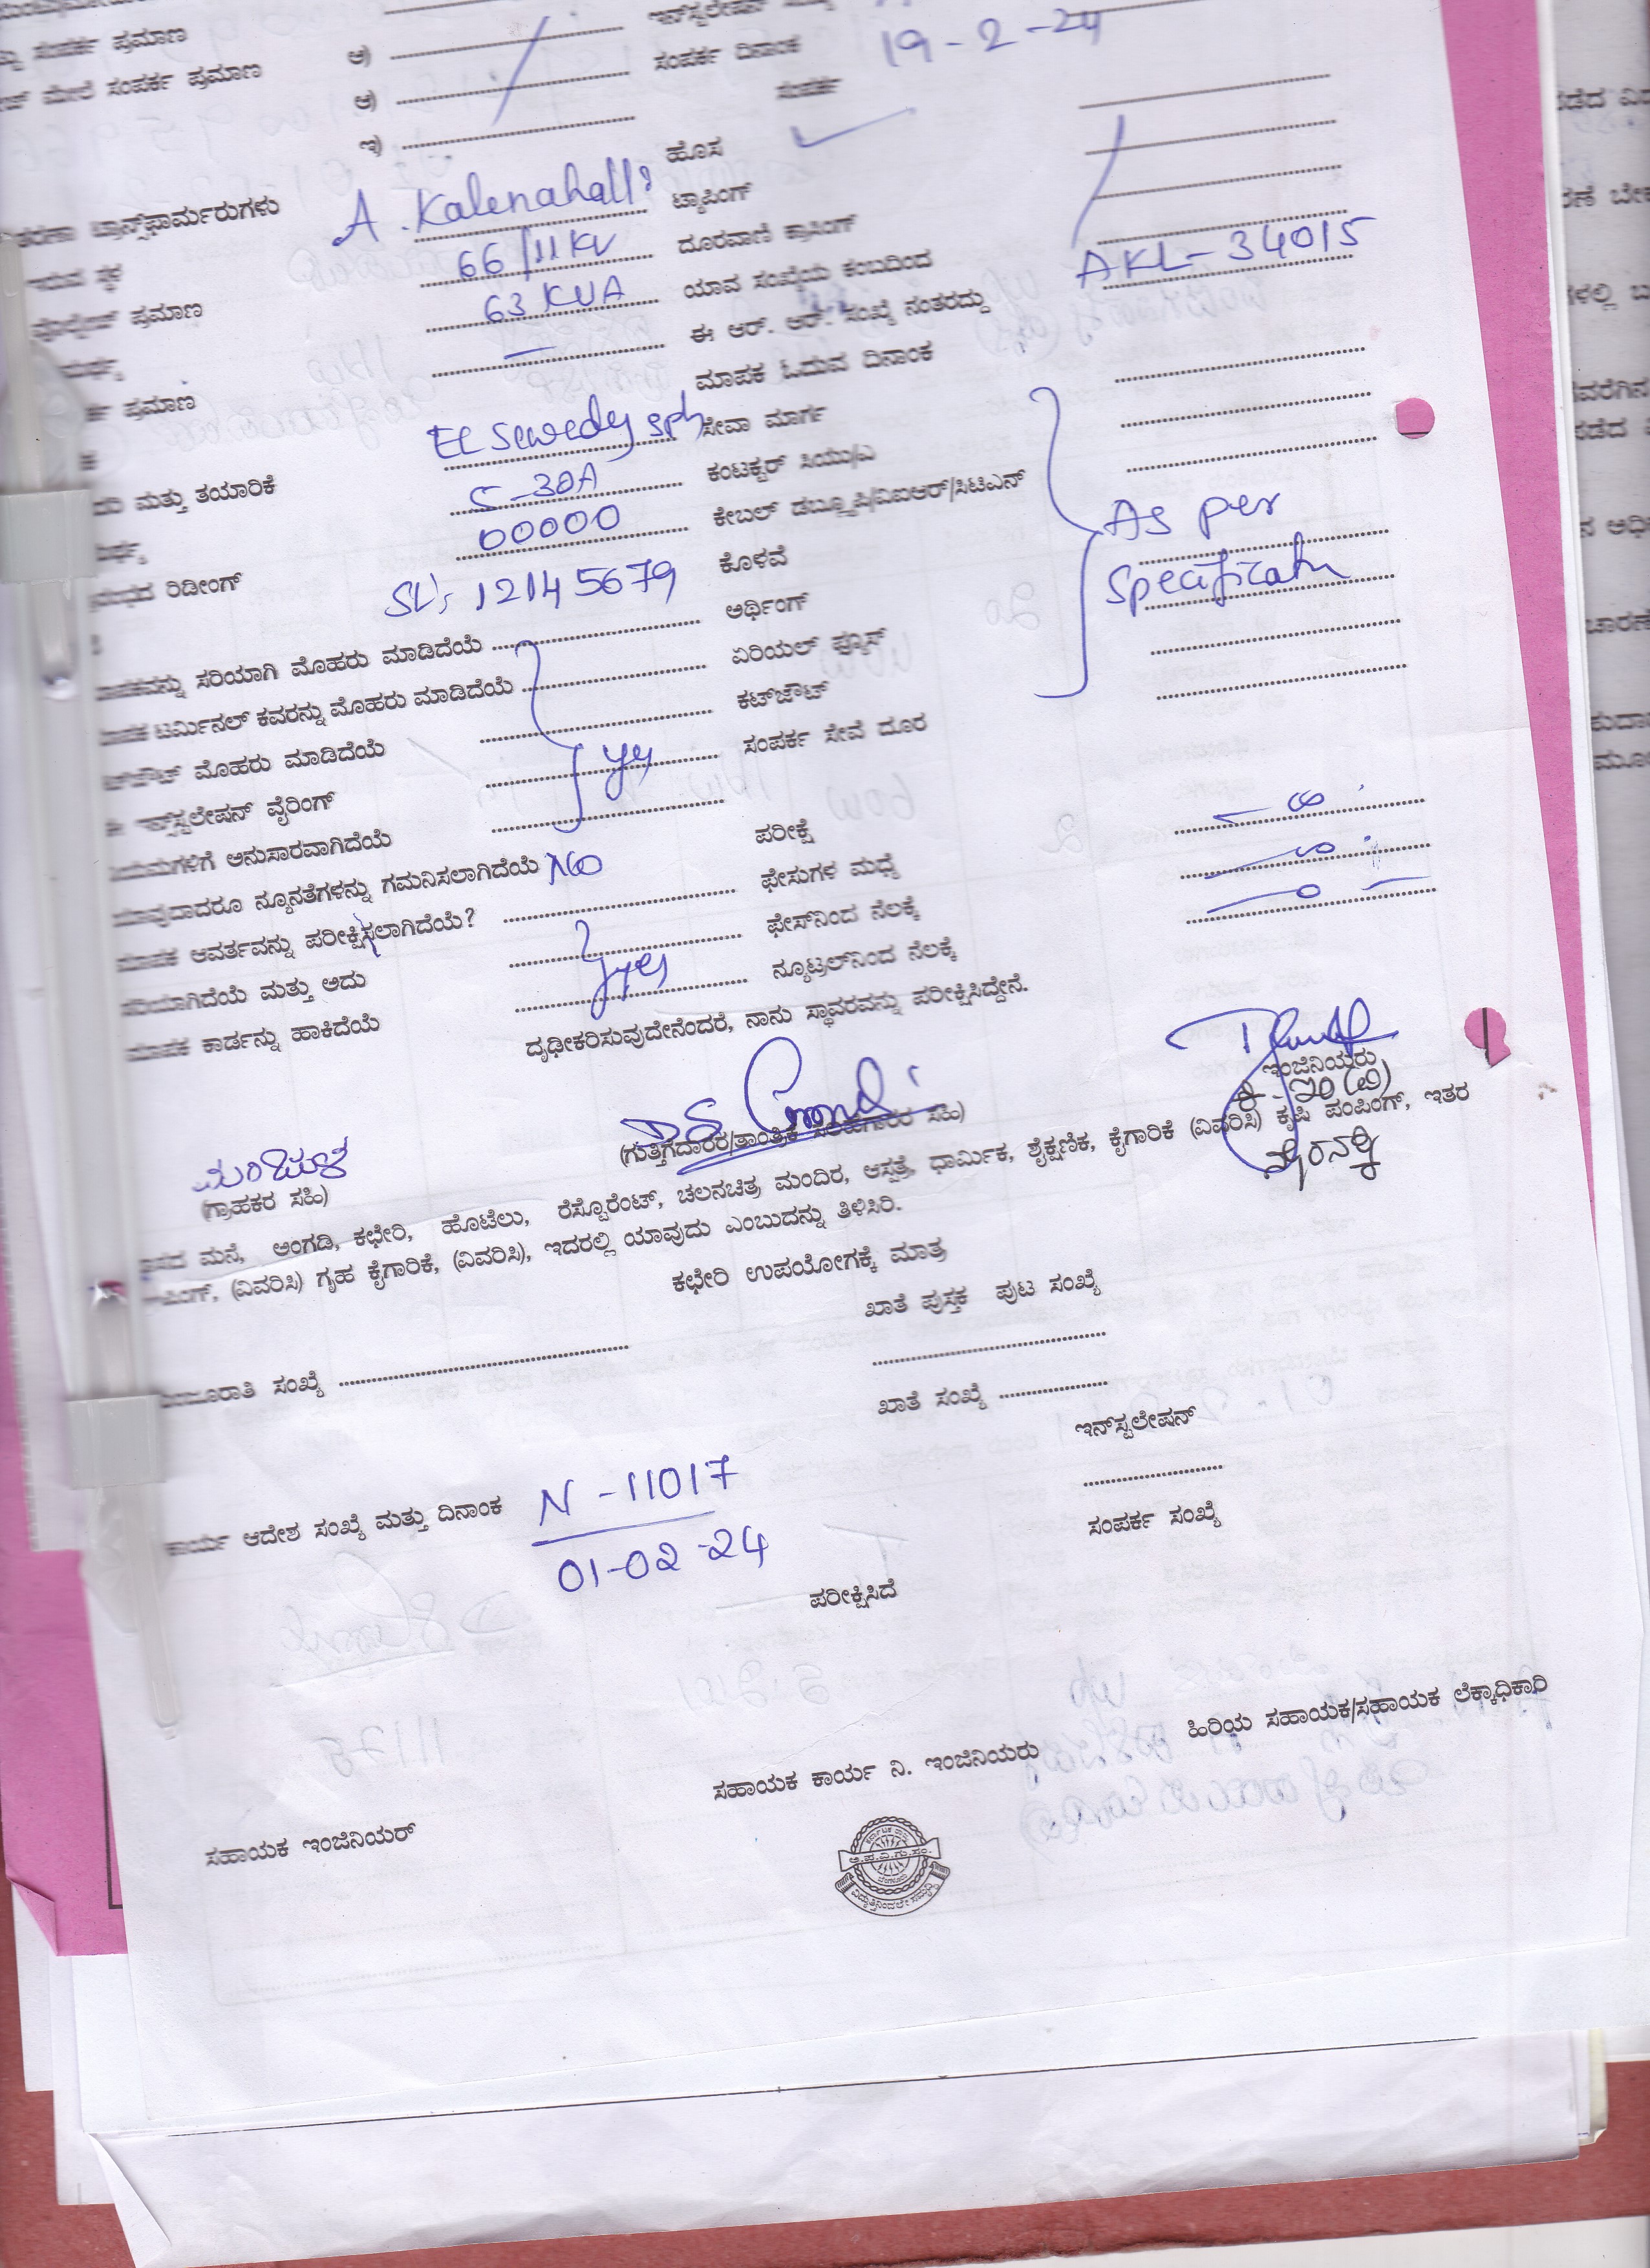 ಸಂಪರ್ಕ ಪ್ರಮಾಣ ಅ)
ಮೇಲೆ ಸಂಪರ್ಕ ಪ್ರಮಾಣ ಆ) ಸಂಪರ್ಕ ದಿನಾಂಕ 19-2-24
ಇ) ಸಂಪರ್ಕ
ಹೊಸ
ಟ್ರಾನ್ಸ್‌ಫಾರ್ಮರುಗಳು A. Kalenahalli ಟ್ಯಾಪಿಂಗ್
ಸ್ಥಳ 66/11KV ದೂರವಾಣಿ ಕ್ರಾಸಿಂಗ್
ಪ್ರಮಾಣ 63 KVA ಯಾವ ಸಂಖ್ಯೆಯ ಕಂಬದಿಂದ AKL-34015
ಈ ಆರ್. ಆರ್. ಸಂಖ್ಯೆ ನಂತರದ್ದು
ಪ್ರಮಾಣ ಮಾಪಕ ಓದುವ ದಿನಾಂಕ
El Sewedy sph ಸೇವಾ ಮಾರ್ಗ
ಮತ್ತು ತಯಾರಿಕೆ 5-30A ಕಂಟಕ್ಟರ್ ಸಿಯು/ಎ
00000 ಕೇಬಲ್ ಡಬ್ಲ್ಯೂಪಿ/ವಿಐಆರ್/ಸಿಟಿಎನ್ As per
ರಿಡೀಂಗ್ SL: 12145679 ಕೊಳವೆ Specificatn
ಅರ್ಥಿಂಗ್
ಸರಿಯಾಗಿ ಮೊಹರು ಮಾಡಿದೆಯೆ ಏರಿಯಲ್ ಫ್ಯೂಸ್
ಮಾಪಕ ಟರ್ಮಿನಲ್ ಕವರನ್ನು ಮೊಹರು ಮಾಡಿದೆಯೆ ಕಟ್‌ಔಟ್
ಮೊಹರು ಮಾಡಿದೆಯೆ yes ಸಂಪರ್ಕ ಸೇವೆ ದೂರ
ಈ ಇನ್‌ಸ್ಟಲೇಷನ್ ವೈರಿಂಗ್
ನಿಯಮಗಳಿಗೆ ಅನುಸಾರವಾಗಿದೆಯೆ ಪರೀಕ್ಷೆ
ಯಾವುದಾದರೂ ನ್ಯೂನತೆಗಳನ್ನು ಗಮನಿಸಲಾಗಿದೆಯೆ NO ಫೇಸುಗಳ ಮಧ್ಯೆ
ಮಾಪಕ ಆವರ್ತವನ್ನು ಪರೀಕ್ಷಿಸಲಾಗಿದೆಯೆ? ಫೇಸ್‌ನಿಂದ ನೆಲಕ್ಕೆ
ಸರಿಯಾಗಿದೆಯೆ ಮತ್ತು ಅದು yes ನ್ಯೂಟ್ರಲ್‌ನಿಂದ ನೆಲಕ್ಕೆ
ಮಾಪಕ ಕಾರ್ಡನ್ನು ಹಾಕಿದೆಯೆ
ದೃಢೀಕರಿಸುವುದೇನೆಂದರೆ, ನಾನು ಸ್ಥಾವರವನ್ನು ಪರೀಕ್ಷಿಸಿದ್ದೇನೆ.
ಇಂಜಿನಿಯರು
ಮಂಜುಳ (ಗುತ್ತಿಗೆದಾರರ/ತಾಂತ್ರಿಕ ಸಲಹೆಗಾರರ ಸಹಿ)
(ಗ್ರಾಹಕರ ಸಹಿ)
ವಾಸದ ಮನೆ, ಅಂಗಡಿ, ಕಛೇರಿ, ಹೊಟೆಲು, ರೆಸ್ಟೊರೆಂಟ್, ಚಲನಚಿತ್ರ ಮಂದಿರ, ಆಸ್ಪತ್ರೆ, ಧಾರ್ಮಿಕ, ಶೈಕ್ಷಣಿಕ, ಕೈಗಾರಿಕೆ (ವಿವರಿಸಿ) ಕೃಷಿ ಪಂಪಿಂಗ್, ಇತರ
(ವಿವರಿಸಿ) ಗೃಹ ಕೈಗಾರಿಕೆ, (ವಿವರಿಸಿ), ಇದರಲ್ಲಿ ಯಾವುದು ಎಂಬುದನ್ನು ತಿಳಿಸಿರಿ.
ಕಛೇರಿ ಉಪಯೋಗಕ್ಕೆ ಮಾತ್ರ
ಖಾತೆ ಪುಸ್ತಕ ಪುಟ ಸಂಖ್ಯೆ
ಮಂಜೂರಾತಿ ಸಂಖ್ಯೆ
ಖಾತೆ ಸಂಖ್ಯೆ
ಇನ್‌ಸ್ಟಲೇಷನ್
ಕಾರ್ಯ ಆದೇಶ ಸಂಖ್ಯೆ ಮತ್ತು ದಿನಾಂಕ N-11017
01-02-24
ಸಂಪರ್ಕ ಸಂಖ್ಯೆ
ಪರೀಕ್ಷಿಸಿದೆ
ಹಿರಿಯ ಸಹಾಯಕ/ಸಹಾಯಕ ಲೆಕ್ಕಾಧಿಕಾರಿ
ಸಹಾಯಕ ಕಾರ್ಯ ನಿ. ಇಂಜಿನಿಯರು
ಸಹಾಯಕ ಇಂಜಿನಿಯರ್